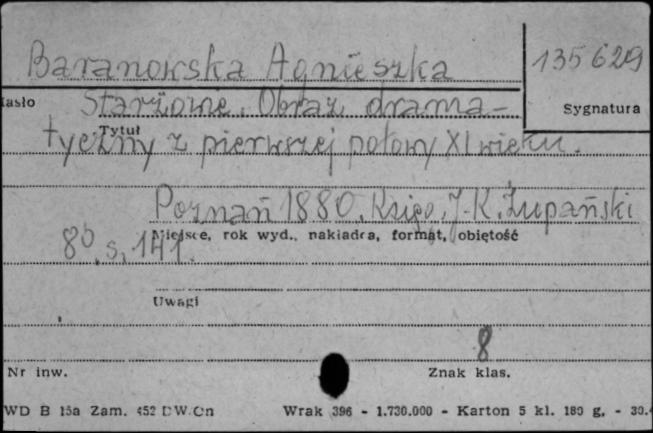 Baranowska Agnieszka
135629
asło
Starżowie. Obraz drama-
Sygnatura
Tytuł
tyczny z pierwszej połowy XI wieku.
Poznań 1880. Księg. J. K. Żupański
Miejsce, rok wyd., nakładca, format, objętość
8º. s. 141.
Uwagi
8
Nr inw.
Znak klas.
WD B 15a Zam. 452 DW.Cn Wrak 396 - 1.730.000 - Karton 5 kl. 180 g, - 30.